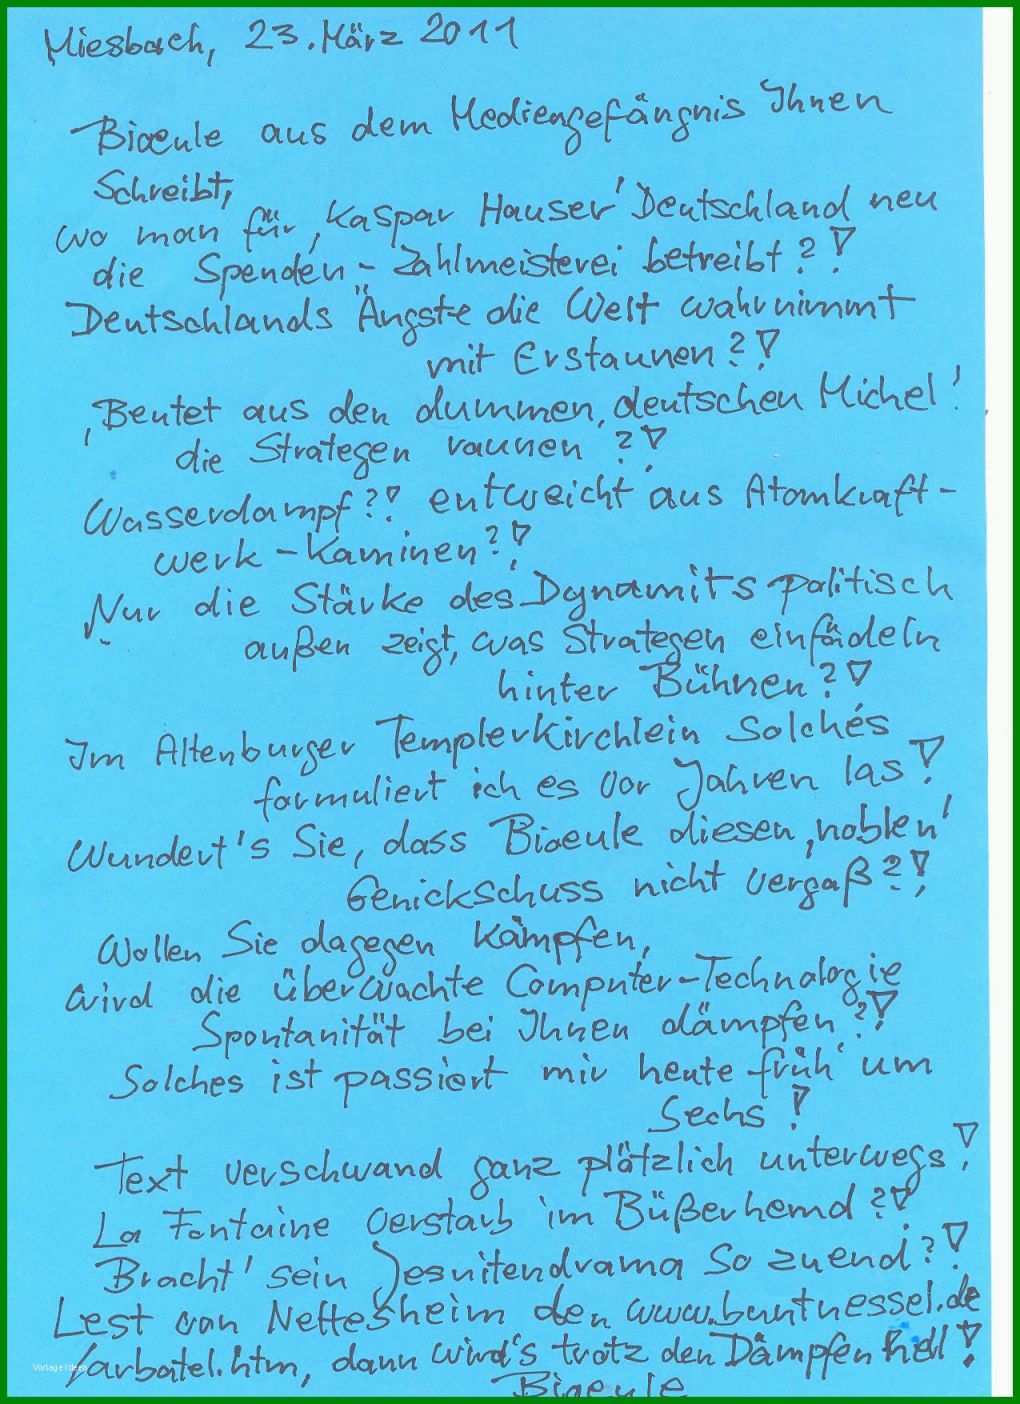 Miesbach, 23. März 2011
Bioeule aus dem Mediengefängnis Ihnen
Schreibt,
wo man für ‚Kaspar Hauser' Deutschland neu
die Spenden-Zahlmeisterei betreibt?!
Deutschlands Ängste die Welt wahrnimmt
mit Erstaunen?!
‚Beutet aus den dummen, deutschen Michel'
die Strategen raunen?!
Wasserdampf?! entweicht aus Atomkraft-
werk-Kaminen?!
Nur die Stärke des Dynamits politisch
außen zeigt, was Strategen einfädeln
hinter Bühnen?!
Im Altenburger Templerkirchlein solches
formuliert ich es vor Jahren las!
Wundert's Sie, dass Bioeule diesen ‚noblen'
Genickschuss nicht vergaß?!
Wollen Sie dagegen kämpfen,
wird die überwachte Computer-Technologie
Spontanität bei Ihnen dämpfen?!
Solches ist passiert mir heute früh' um
Sechs!
Text verschwand ganz plötzlich unterwegs!
La Fontaine verstarb im Büßerhemd?!
Bracht' sein Jesuitendrama so zuend'?!
Lest von Nettesheim den www.buntnessel.de
/arbatel.htm, dann wird's trotz den Dämpfen hell!
Bioeule
Vorlage Ideen